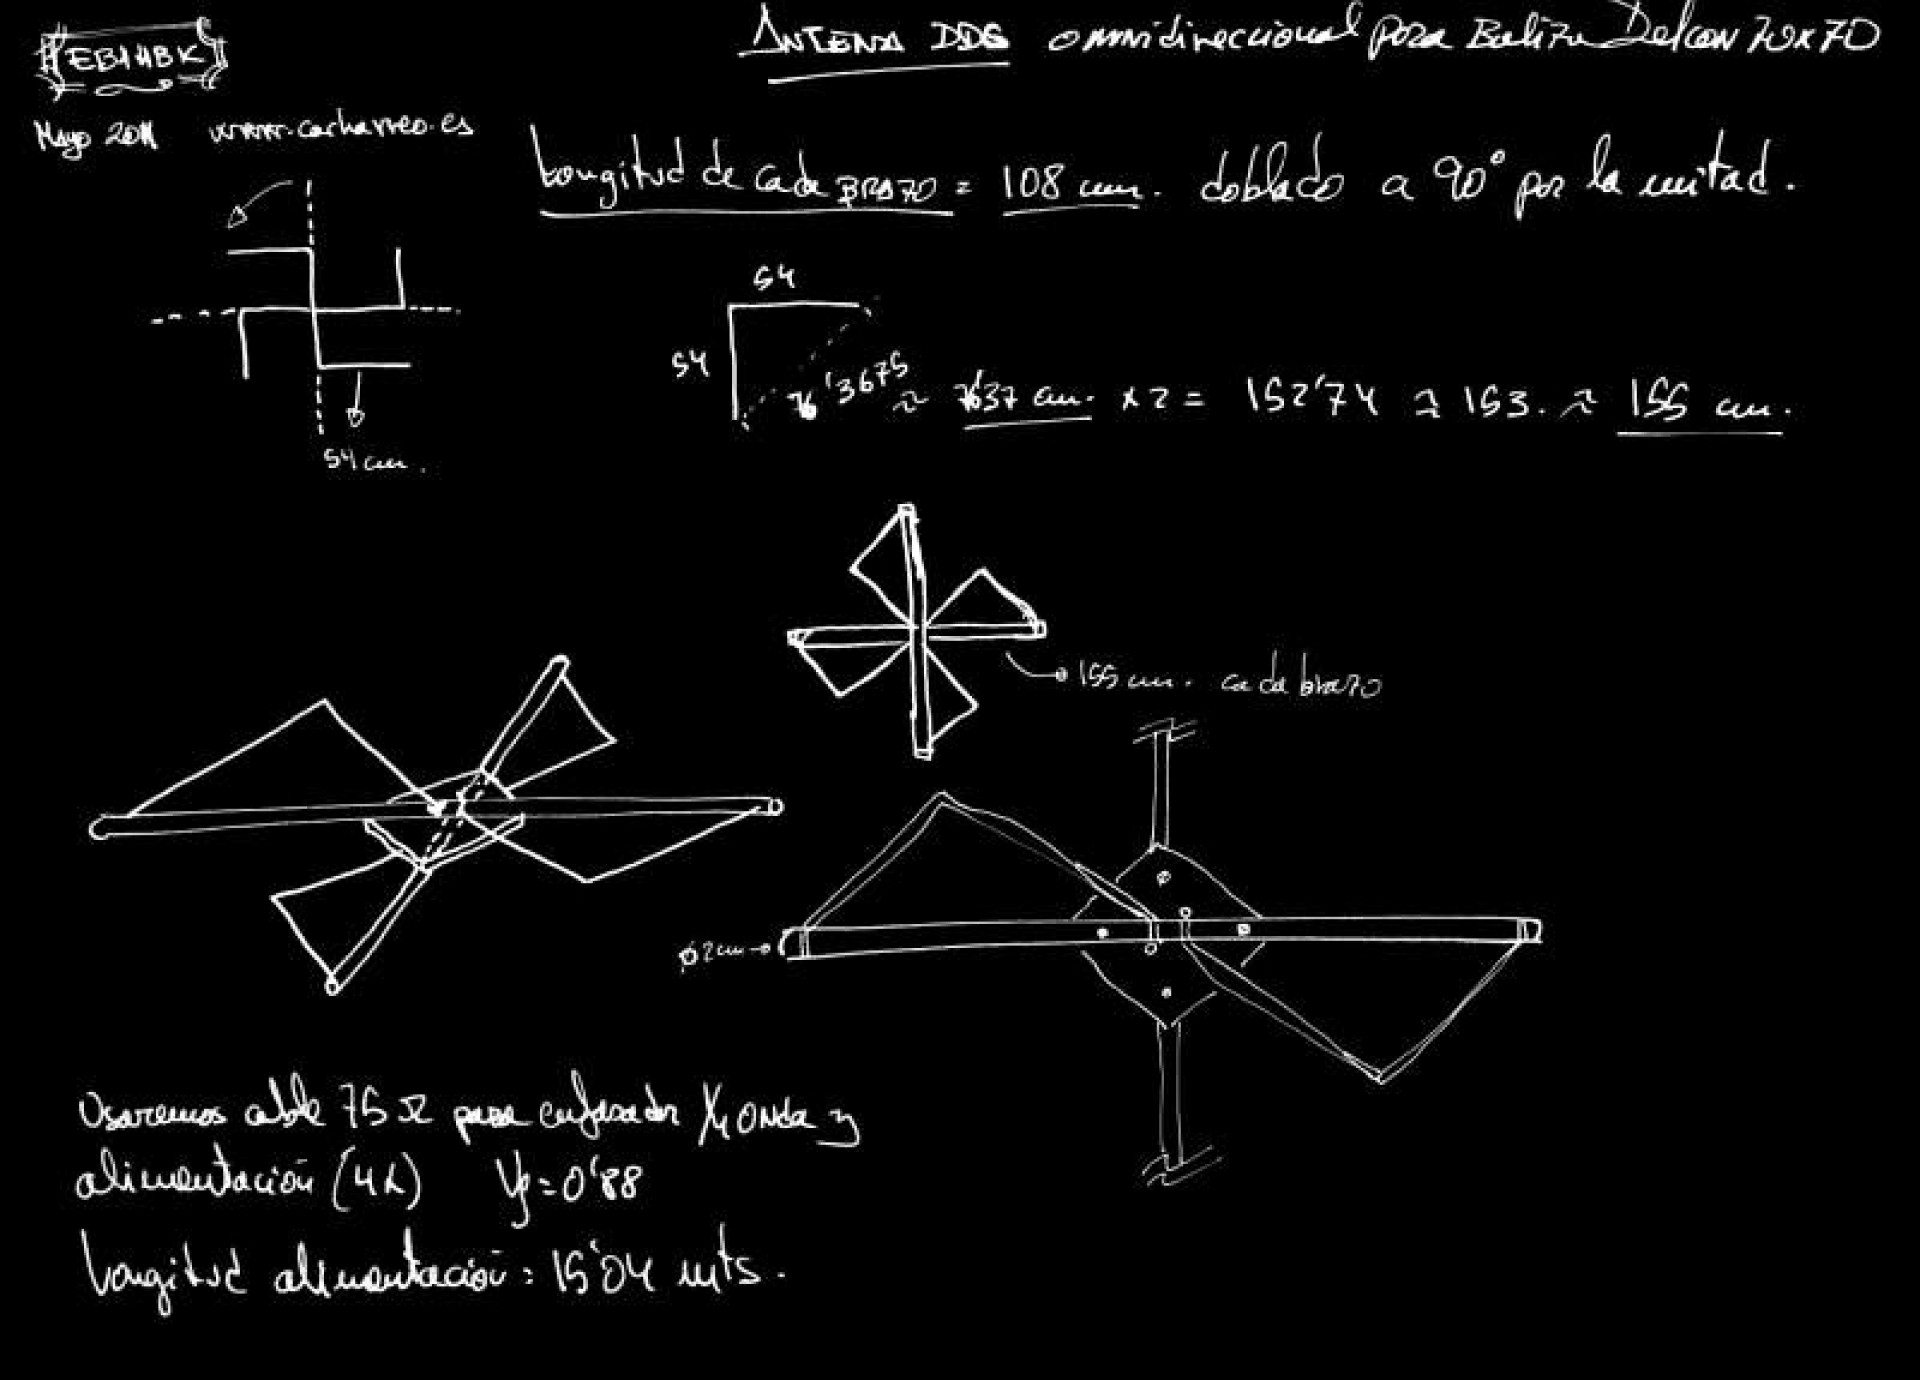 EB1HBK
ANTENA DDG omnidireccional para Baliza Delcon 70x70
Mayo 2011 www.cacharreo.es
Longitud de cada BRAZO = 108 cm. doblado a 90° por la mitad.
54
54
76'3675 ≈ 76'37 cm. x 2 = 152'74 ≈ 153. ≈ 155 cm.
54 cm.
155 cm. cada brazo
Ø 2cm
Usaremos cable 75 Ω para enfasador 1/4 onda y
alimentación (4λ) Vf = 0'88
Longitud alimentación: 15'04 mts.